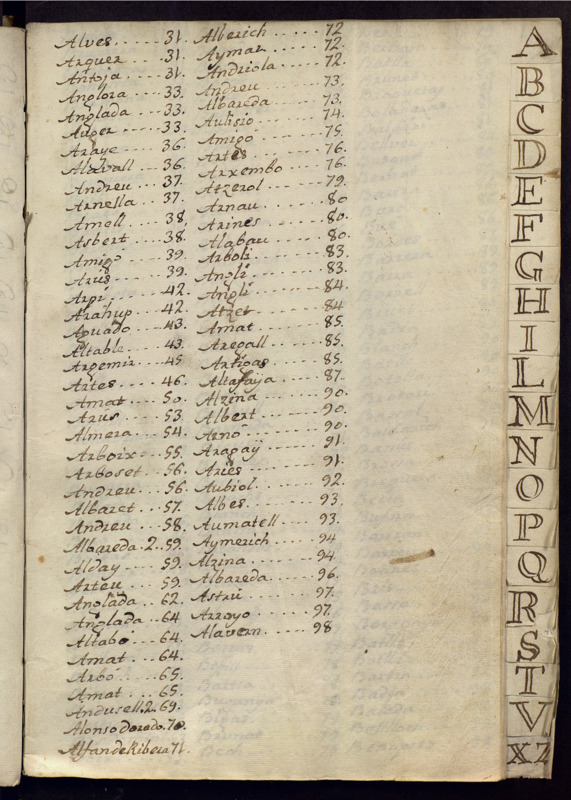 Alves. .... 31.
Arquer ... 31.
Antoja ... 31.
Anglora ... 33.
Anglada ... 33.
Auger ... 33.
Araye ... 36.
Alavall ... 36.
Andreu ... 37.
Arnella ... 37.
Amell ... 38.
Asbert ... 38.
Amigo ... 39.
Ariis ... 39.
Arpi ... 42.
Arahup .. 42.
Aguado .. 43.
Altable .. 43.
Argemir .. 45.
Artes ... 46.
Amat .... 50.
Arus ... 53.
Almera ... 54.
Arboix ... 55.
Arboset .. 56.
Andreu ... 56.
Albaret ... 57.
Andreu ... 58.
Albareda.2.. 59.
Alday .... 59.
Arteu ... 59.
Anglada .. 62.
Anglada .. 64
Altabó ... 64.
Amat .... 64.
Arbó .... 65.
Amat ... 65.
Andusell.2. 69.
Alonso Doredo. 70.
Alfan de Ribera 71.
Alberich .... 72
Aymar .... 72.
Andriola .... 72.
Andreu .... 73.
Albareda ... 73.
Aulisio .... 74.
Amigó .... 75.
Artés .... 76.
Arxembo .... 76.
Atzerol .... 79.
Arnau .... 80
Arines .... 80.
Alabau .... 80.
Arboli .... 83.
Angli .... 83.
Angli .... 84.
Atzet .... 84
Amat .... 85.
Aregall .... 85.
Artigas .... 85.
Altafaija .... 87.
Alzina .... 90.
Albert .... 90.
Arnó .... 90.
Aragaÿ .... 91.
Ariés .... 91.
Aubiol .... 92.
Albes .... 93.
Aumatell .... 93.
Aymerich .... 94
Alzina .... 94.
Albareda .... 96.
Astri .... 97.
Arroyo .... 97.
Alavern .... 98
A
B
C
D
E
F
G
H
I
L
M
N
O
P
Q
R
S
T
V
XZ